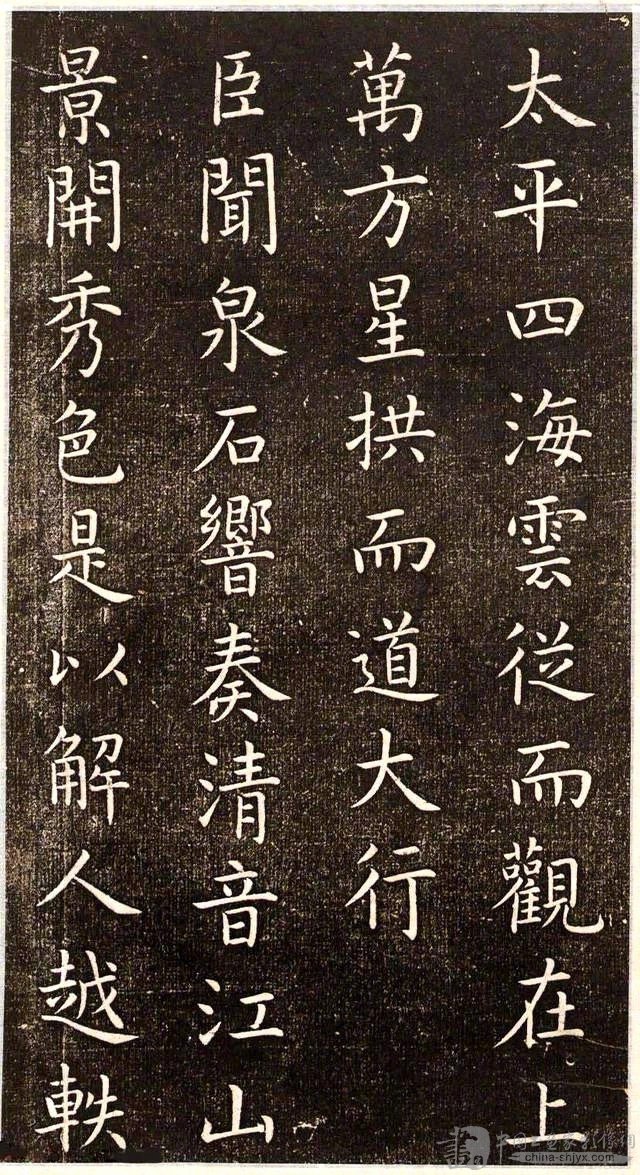 太平四海雲從而觀在上
萬方星拱而道大行
臣聞泉石響奏清音江山
景開秀色是以解人越軼
china-shjyx.com